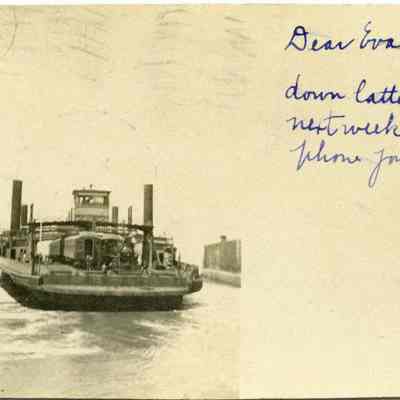 Dear Eva
down latte
next week
phone yo